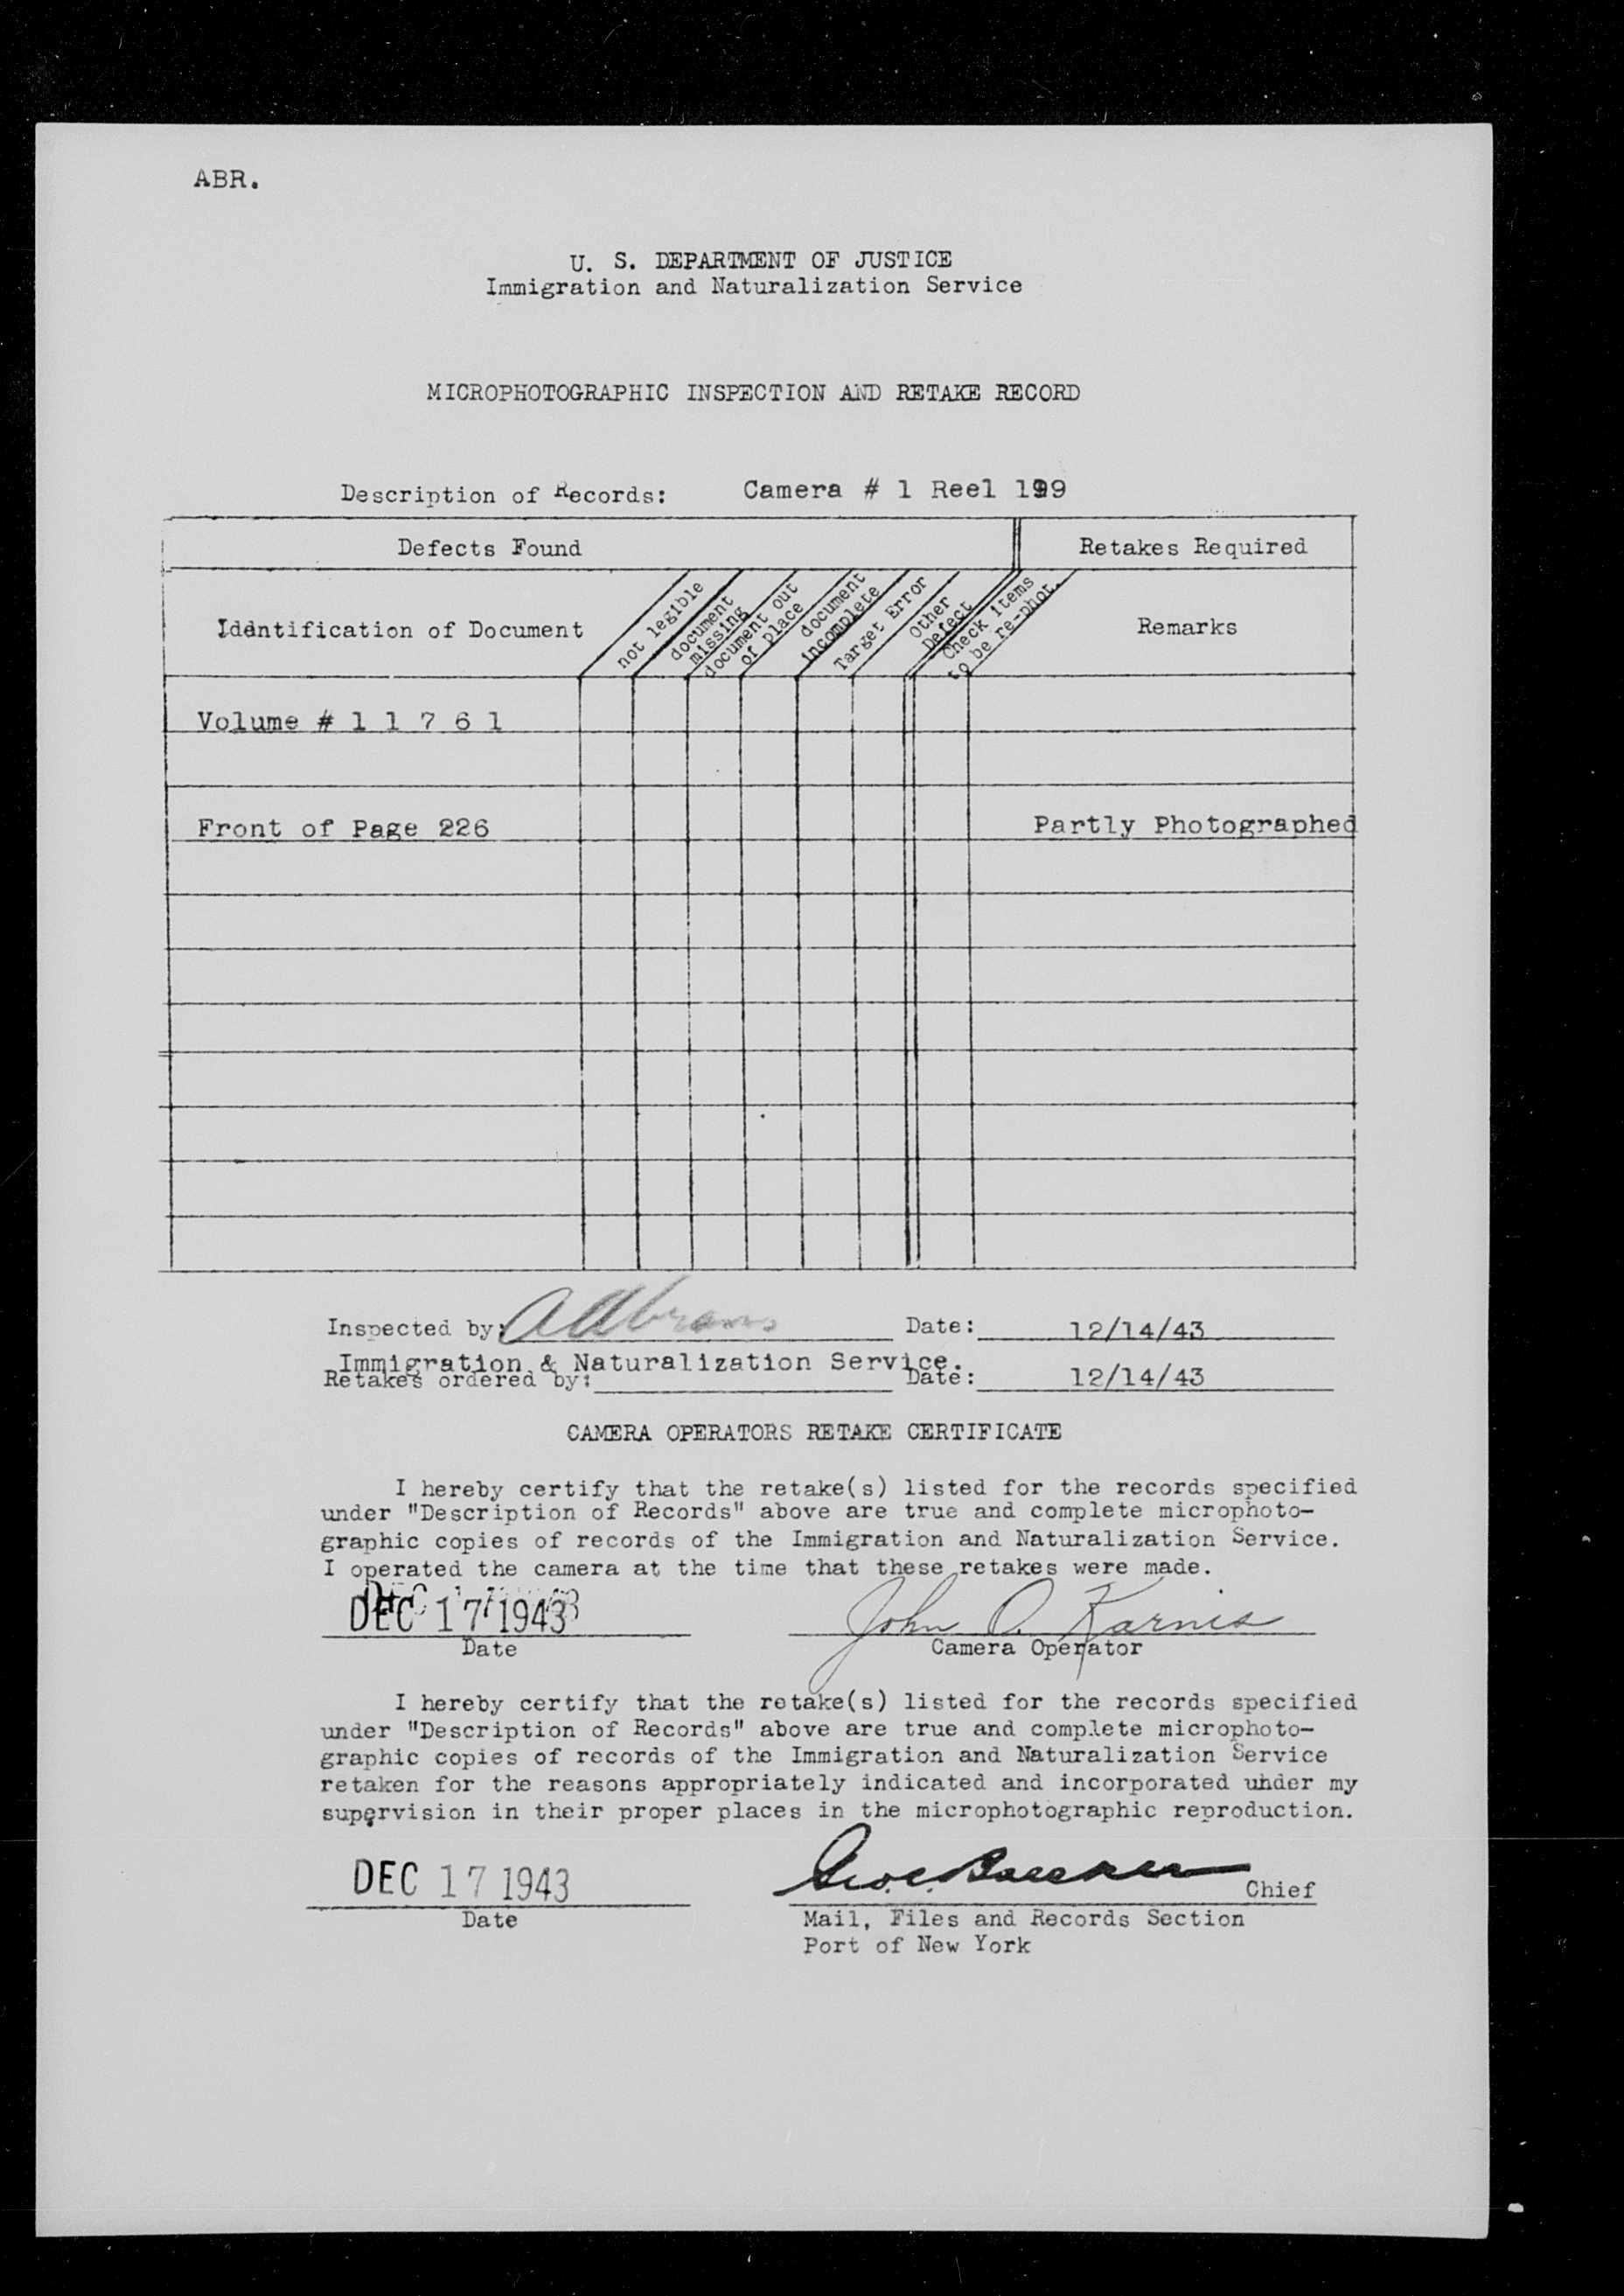 ABR.
U. S. DEPARTMENT OF JUSTICE
Immigration and Naturalization Service
MICROPHOTOGRAPHIC INSPECTION AND RETAKE RECORD
Description of Records: Camera # 1 Reel 199
Defects Found Retakes Required
Identification of Document
not legible
document
missing
document out
of place
document
incomplete
Target Error
Other
Defect
Check items
to be re-phot.
Remarks
Volume # 1 1 7 6 1
Front of Page 226 Partly Photographed
Inspected by: A Abrams Date: 12/14/43
Immigration & Naturalization Service.
Retakes ordered by: Date: 12/14/43
CAMERA OPERATORS RETAKE CERTIFICATE
I hereby certify that the retake(s) listed for the records specified
under "Description of Records" above are true and complete microphoto-
graphic copies of records of the Immigration and Naturalization Service.
I operated the camera at the time that these retakes were made.
DEC 17 1943 John O. Karnis
Date Camera Operator
I hereby certify that the retake(s) listed for the records specified
under "Description of Records" above are true and complete microphoto-
graphic copies of records of the Immigration and Naturalization Service
retaken for the reasons appropriately indicated and incorporated under my
supervision in their proper places in the microphotographic reproduction.
DEC 17 1943 Chief
Date Mail, Files and Records Section
Port of New York